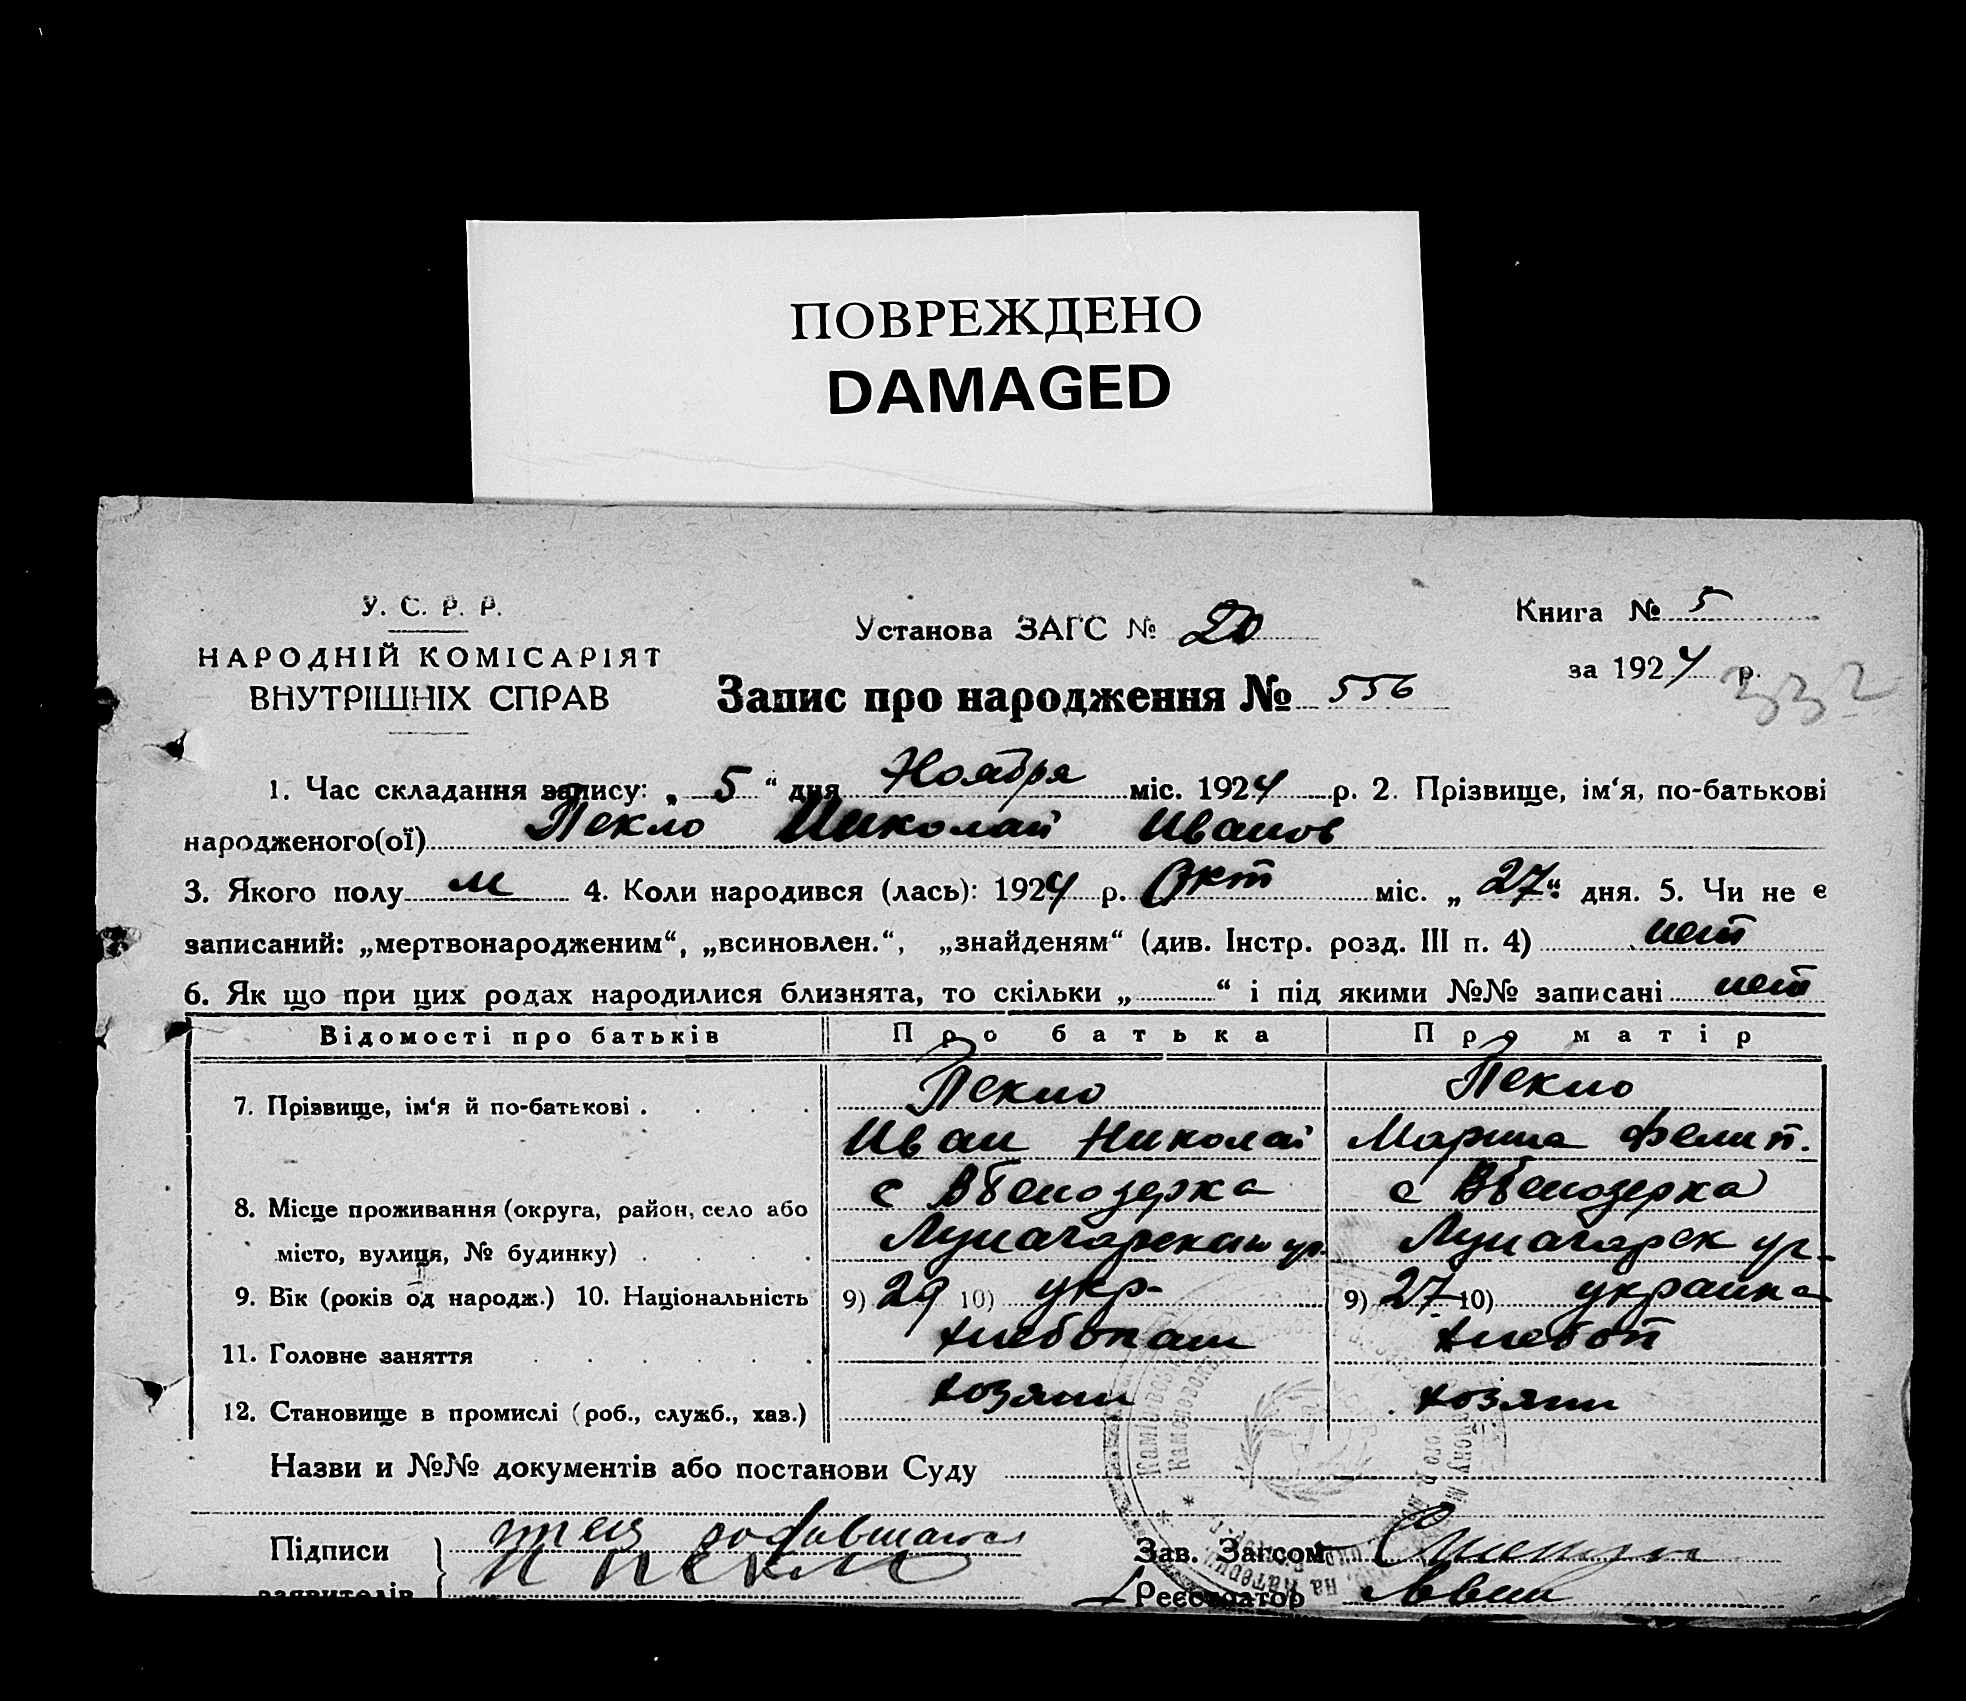 ПОВРЕЖДЕНО
DAMAGED
У. С. Р. Р.
НАРОДНІЙ КОМІСАРІЯТ
ВНУТРІШНІХ СПРАВ
Установа ЗАГС № 20
Книга № 5
за 1924 р.
332
Запис про народження № 556
1. Час складання запису: „ 5 “ дня Ноября міс. 1924 р. 2. Прізвище, ім‘я, по-батькові
народженого(ої) Пекло Николай Иванов
3. Якого полу м 4. Коли народився (лась): 1924 р. Окт міс. „ 27 “ дня. 5. Чи не є
записаний: „мертвонародженим“, „всиновлен.“, „знайденям“ (див. Інстр. розд. III п. 4) нет
6. Як що при цих родах народилися близнята, то скільки „ “ і під якими №№ записані нет
Відомості про батьків Про батька Про матір
7. Прізвище, ім‘я й по-батькові . Пекло Пекло
Иван Николай Марина Фелип.
8. Місце проживання (округа, район, село або с ВБелозерка с ВБелозерка
місто, вулиця, № будинку) Луначарская ул. Луначарск ул.
9. Вік (років од народж.) 10. Національність 9) 29 10) укр- 9) 27 10) украинка
11. Головне заняття хлебопаш хлебоп
12. Становище в промислі (роб., служб., хаз.) хозяин хозяин
Назви и №№ документів або постанови Суду
Підписи
заявителів
Зав. Загсом
Реєстратор